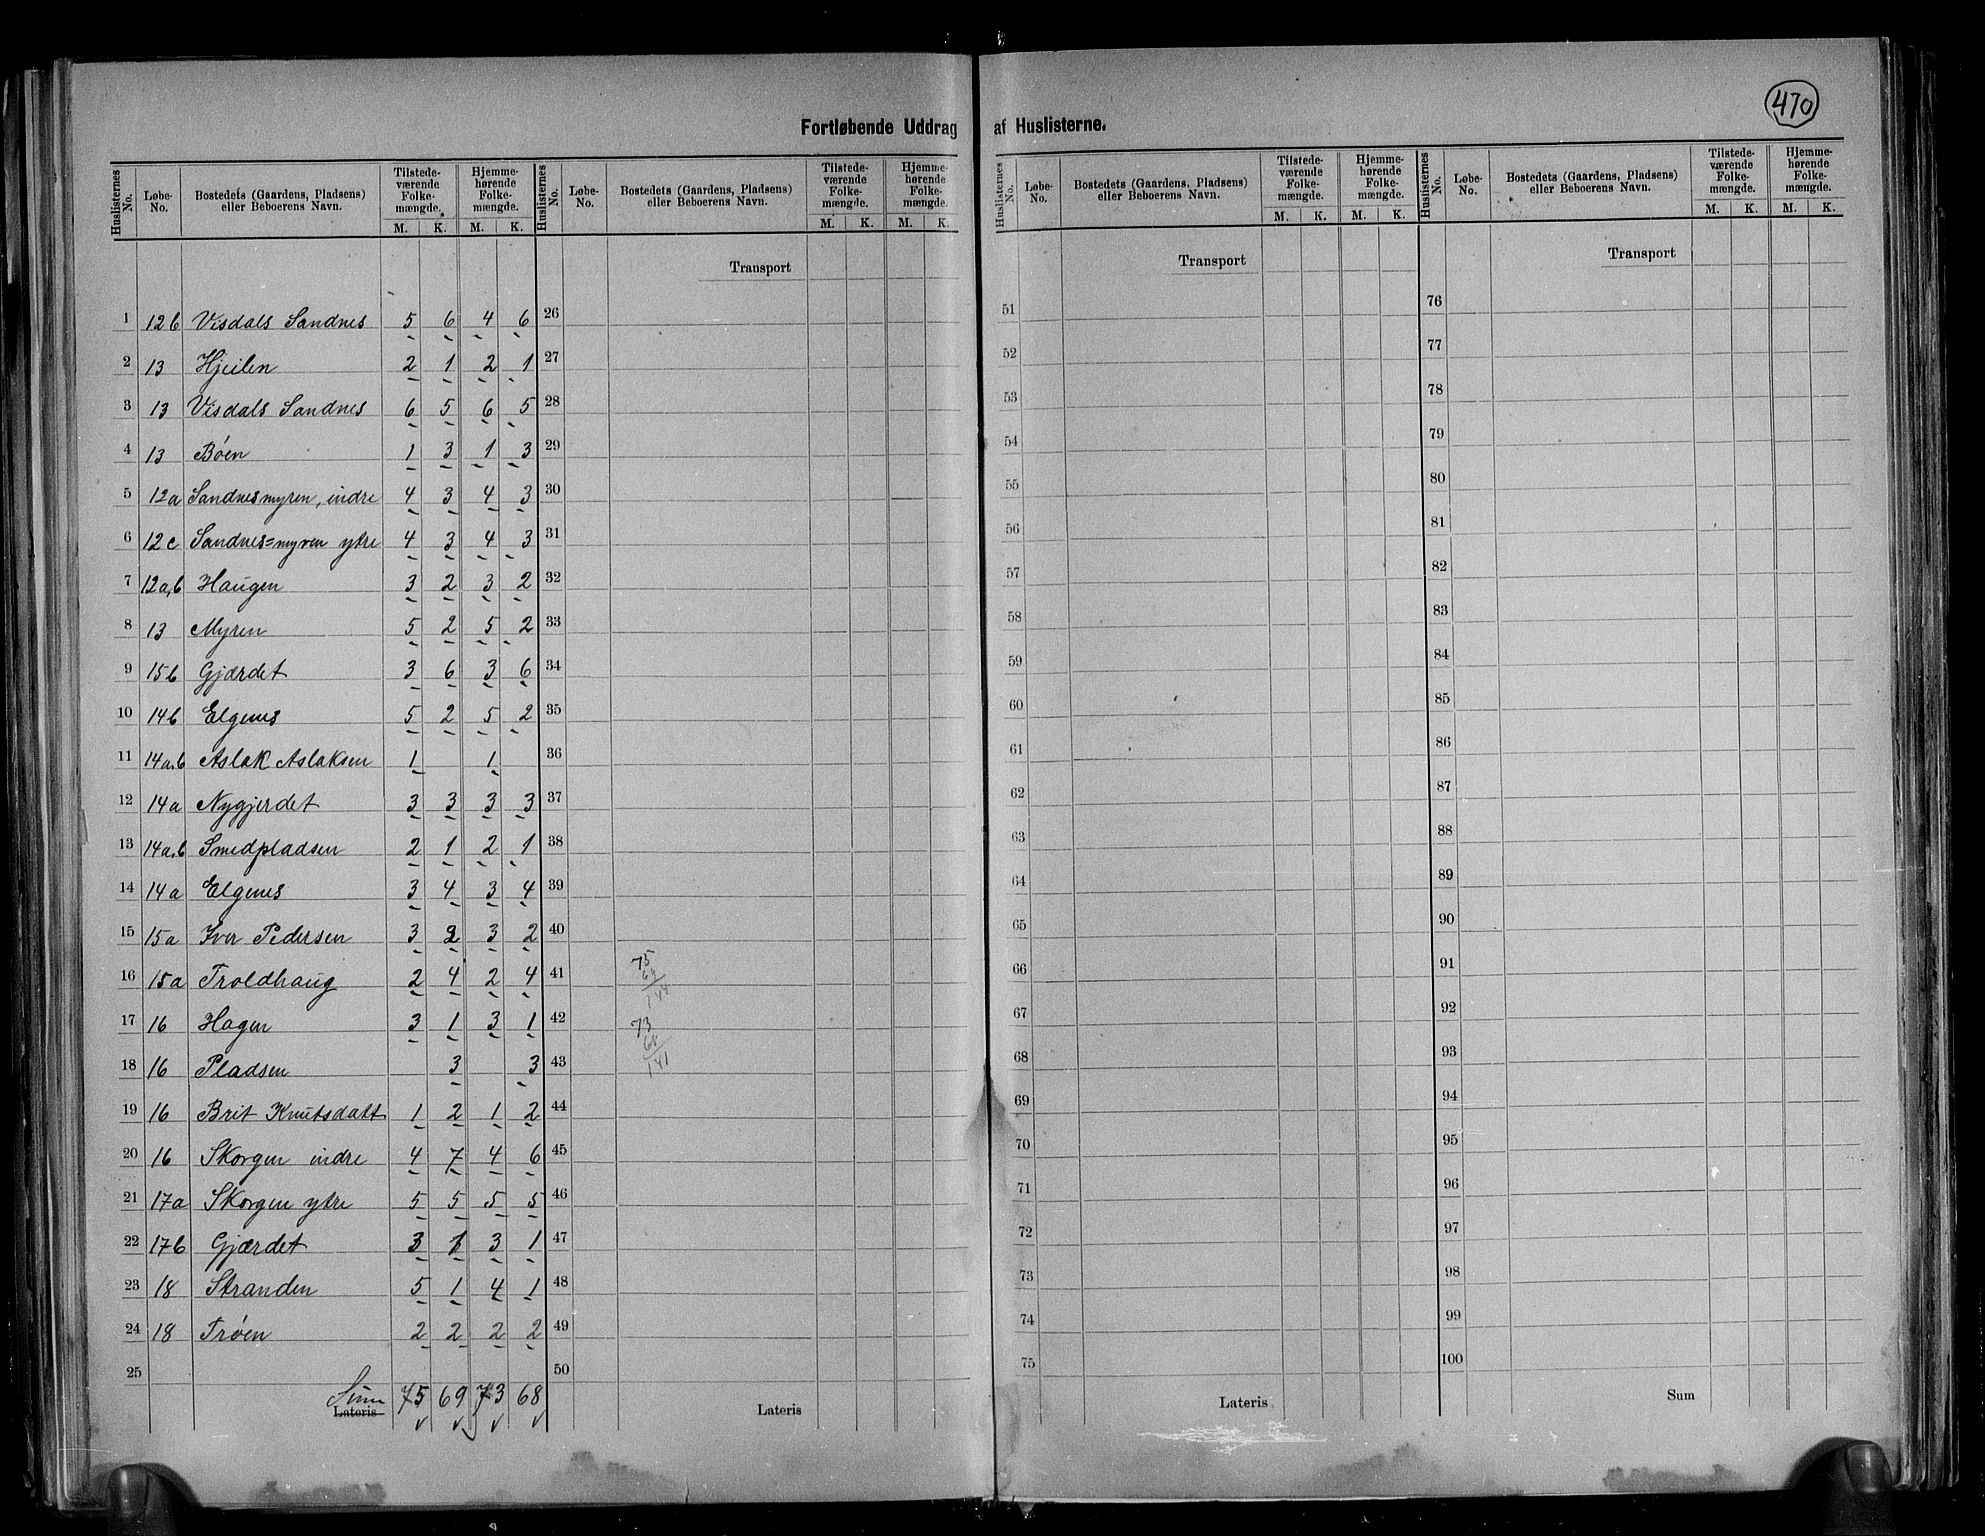 470
Fortløbende Uddrag af Huslisterne.
Huslisternes No. Løbe-No. Bostedets (Gaardens, Pladsens) eller Beboerens Navn. Tilstedeværende Folkemængde. M. K. Hjemmehørende Folkemængde. M. K.
Huslisternes No. Løbe-No. Bostedets (Gaardens, Pladsens) eller Beboerens Navn. Tilstedeværende Folkemængde. M. K. Hjemmehørende Folkemængde. M. K.
Huslisternes No. Løbe-No. Bostedets (Gaardens, Pladsens) eller Beboerens Navn. Tilstedeværende Folkemængde. M. K. Hjemmehørende Folkemængde. M. K.
Huslisternes No. Løbe-No. Bostedets (Gaardens, Pladsens) eller Beboerens Navn. Tilstedeværende Folkemængde. M. K. Hjemmehørende Folkemængde. M. K.
Transport Transport Transport
1 12b Visdals Sandnes 5 6 4 6 26 51 76
2 13 Hjeilen 2 1 2 1 27 52 77
3 13 Visdals Sandnes 6 5 6 5 28 53 78
4 13 Bøen 1 3 1 3 29 54 79
5 12a Sandnesmyren, indre 4 3 4 3 30 55 80
6 12c Sandnes=myren ytre 4 3 4 3 31 56 81
7 12a,b Haugen 3 2 3 2 32 57 82
8 13 Myren 5 2 5 2 33 58 83
9 15b Gjærdet 3 6 3 6 34 59 84
10 14b Elgenes 5 2 5 2 35 60 85
11 14a,b Aslak Aslaksen 1 1 36 61 86
12 14a Nygjerdet 3 3 3 3 37 62 87
13 14a,b Smedpladsen 2 1 2 1 38 63 88
14 14a Elgenes 3 4 3 4 39 64 89
15 15a Iver Pedersen 3 2 3 2 40 65 90
16 15a Troldhaug 2 4 2 4 41 75 69 144 66 91
17 16 Hagen 3 1 3 1 42 73 68 141 67 92
18 16 Pladsen 3 3 43 68 93
19 16 Brit Knutsdatt 1 2 1 2 44 69 94
20 16 Skorgen indre 4 7 4 6 45 70 95
21 17a Skorgen ytre 5 5 5 5 46 71 96
22 17b Gjærdet 3 1 3 1 47 72 97
23 18 Stranden 5 1 4 1 48 73 98
24 18 Trøen 2 2 2 2 49 74 99
25 50 75 100
Sum Lateris 75 69 73 68 Lateris Lateris Sum